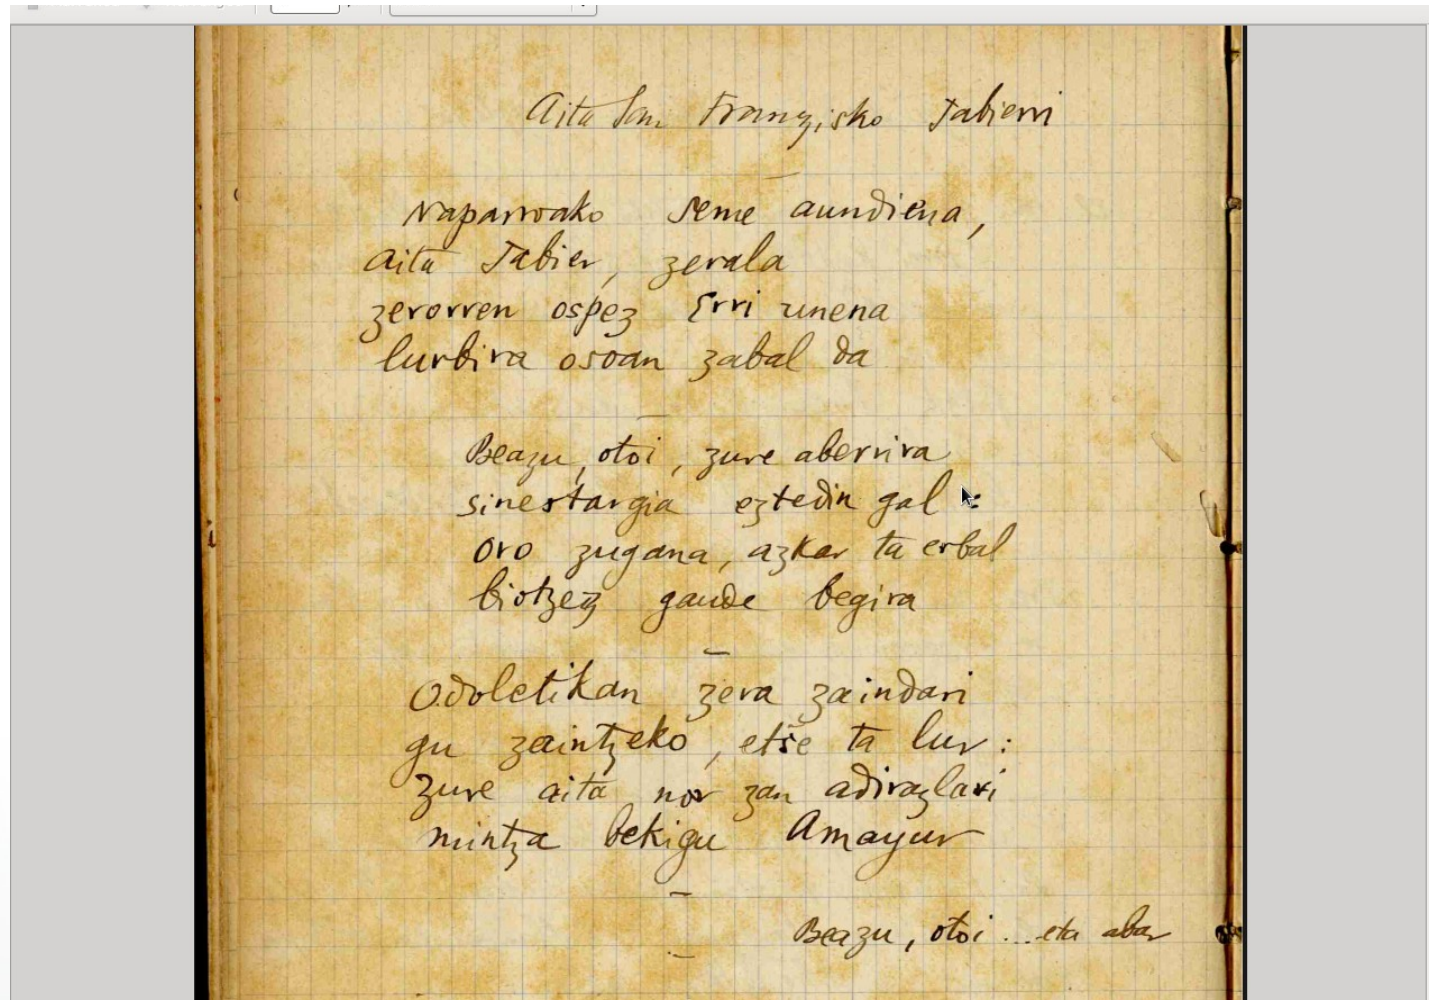 Aita San Franzisko Jabierri
Naparroako seme aundiena,
aita Jabier, zerala
zerorren ospez Erri unena
lurbira osoan zabal da
Beazu, otoi, zure aberrira
sinestargia eztedin gal :
oro zugana, azkar ta erbal
biotzez gaude begira
Odoletikan zera zaindari
gu zaintzeko, etše ta lur :
zure aita nor zan adirazlari
mintza bekigu Amayur
Beazu, otoi ... eta abar